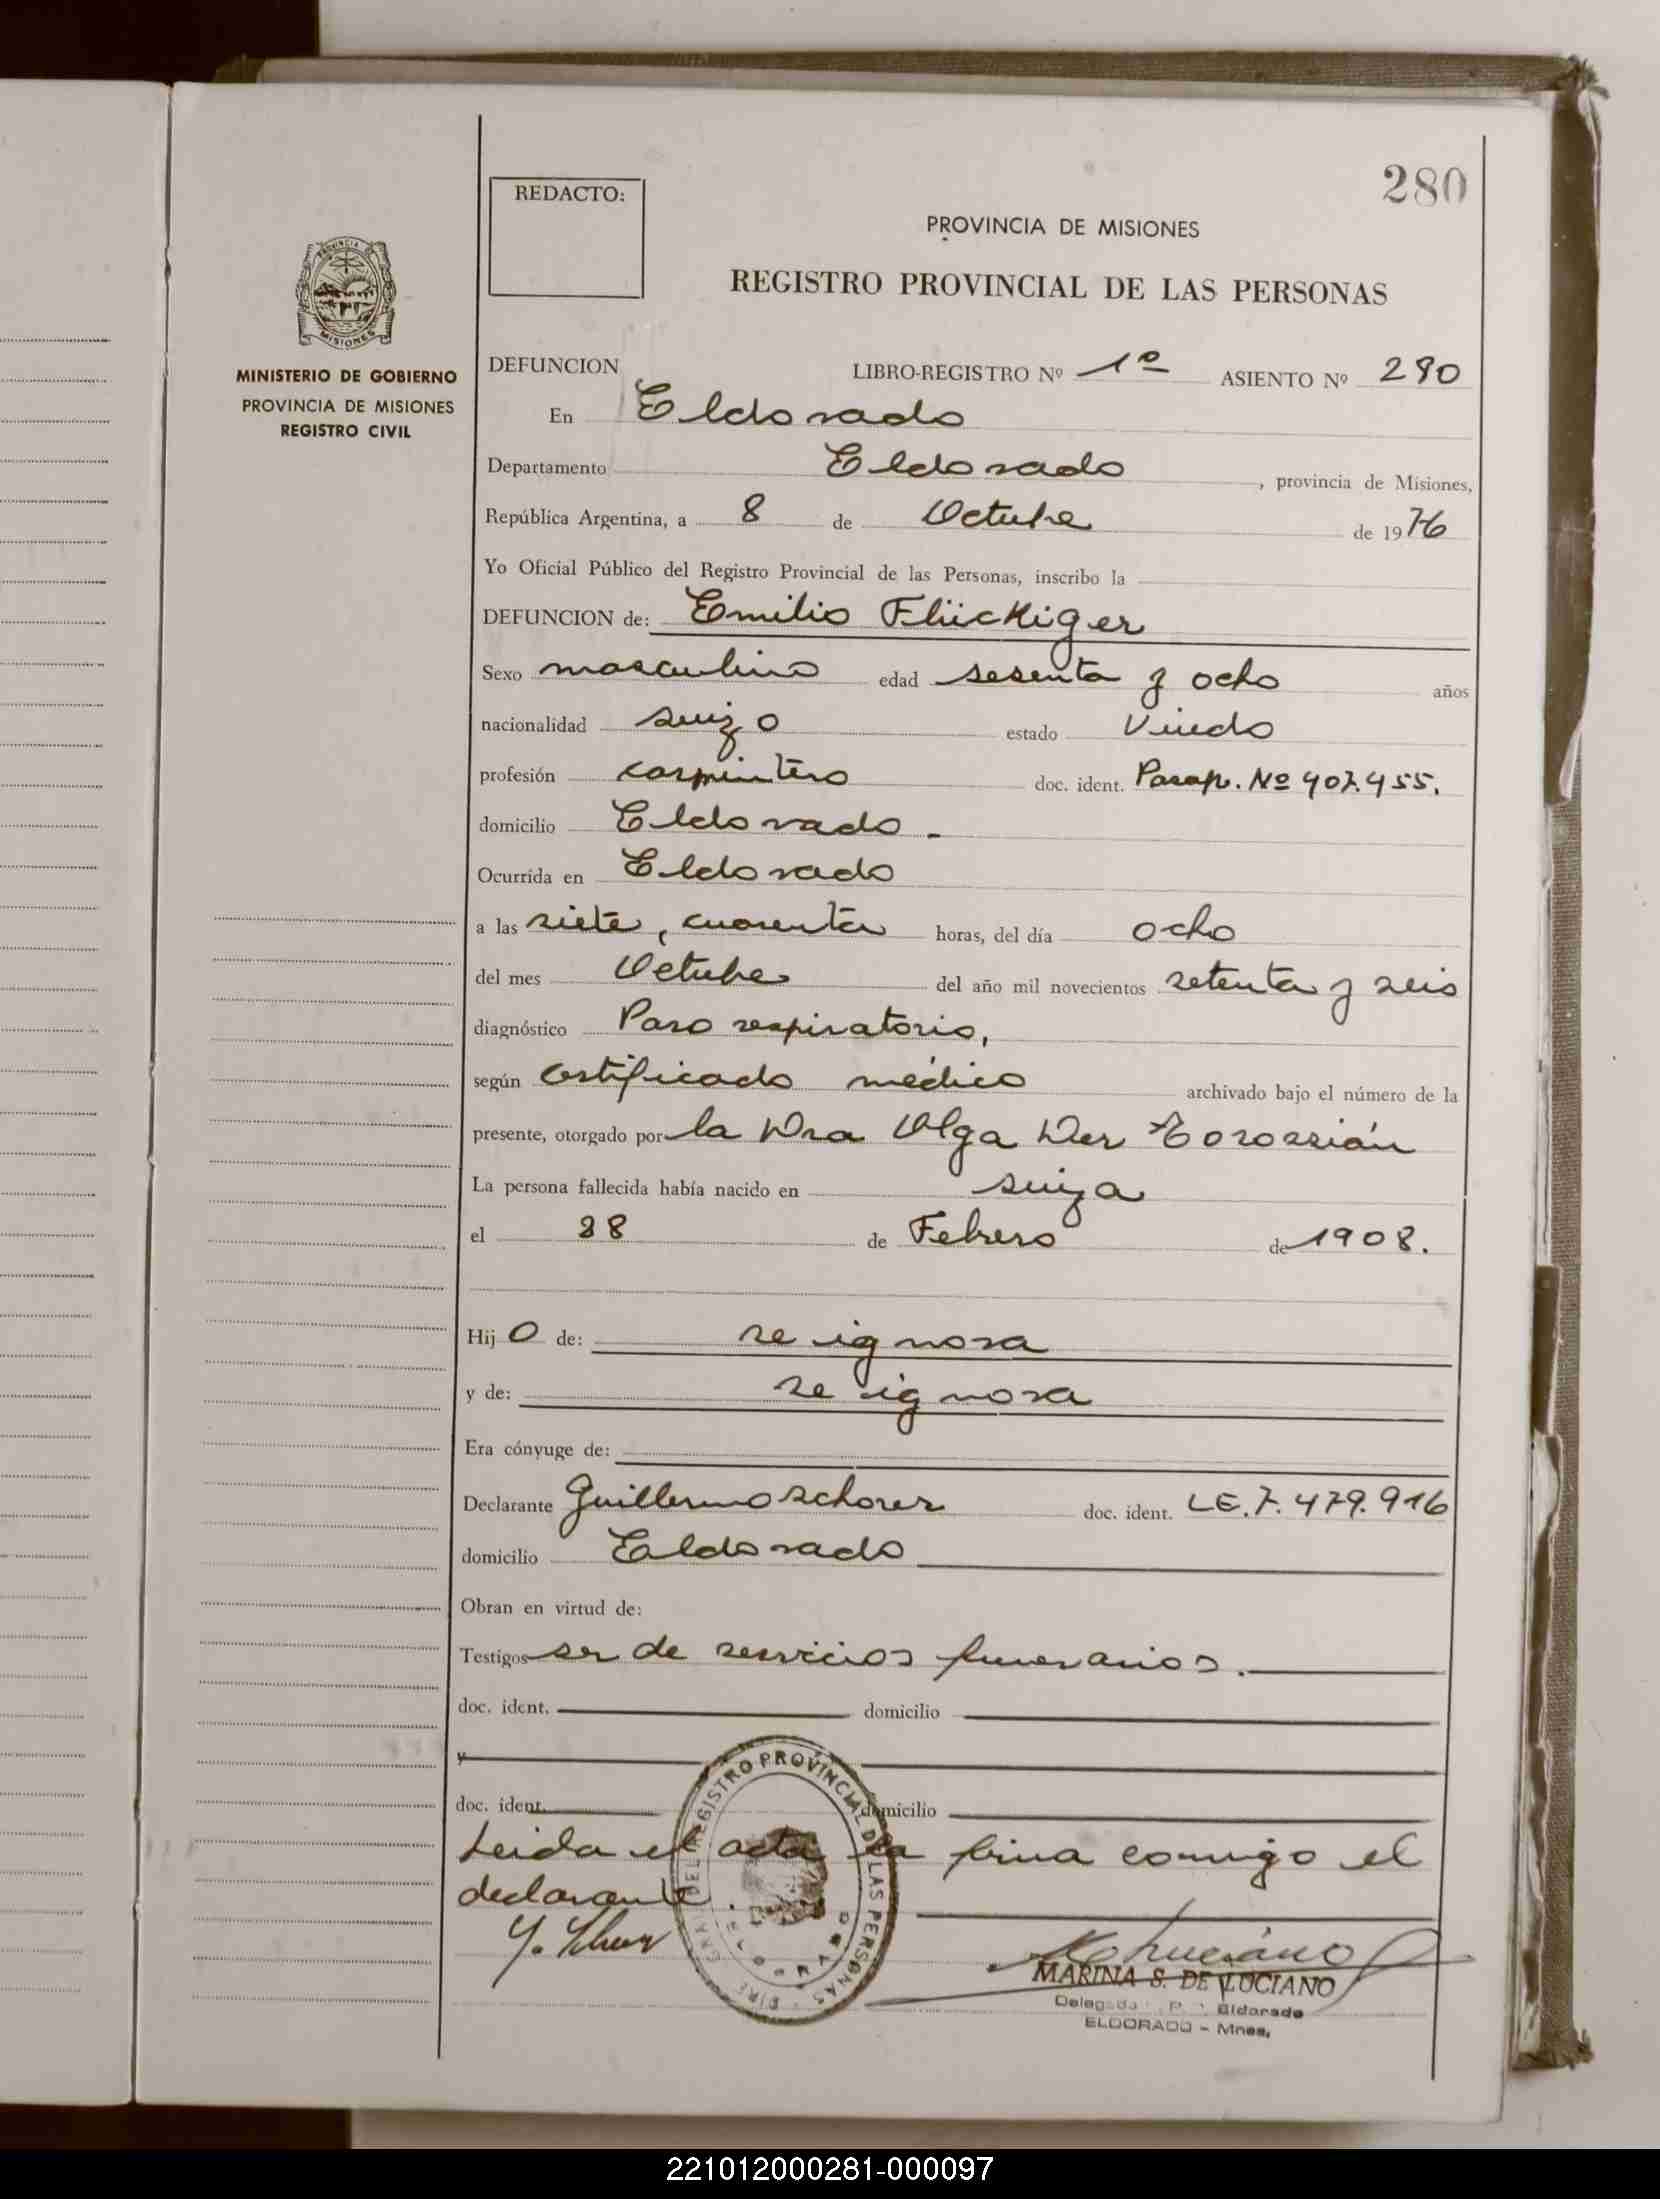 280
REDACTO:
PROVINCIA DE MISIONES
REGISTRO PROVINCIAL DE LAS PERSONAS
PROVINCIA DE MISIONES
MINISTERIO DE GOBIERNO
PROVINCIA DE MISIONES
REGISTRO CIVIL
DEFUNCION LIBRO-REGISTRO Nº 1º ASIENTO Nº 280
En Eldorado
Departamento Eldorado, provincia de Misiones,
República Argentina, a 8 de Octubre de 1976
Yo Oficial Público del Registro Provincial de las Personas, inscribo la
DEFUNCION de: Emilio Flückiger
Sexo masculino edad sesenta y ocho años
nacionalidad suizo estado Viudo
profesión carpintero doc. ident. Pasap. Nº 407.455.
domicilio Eldorado.
Ocurrida en Eldorado
a las siete, cuarenta horas, del día ocho
del mes Octubre del año mil novecientos setenta y seis
diagnóstico Paro respiratorio,
según Certificado médico archivado bajo el número de la
presente, otorgado por la Dra Olga Der Torossián
La persona fallecida había nacido en suiza
el 28 de Febrero de 1908.
Hijo de: se ignora
y de: se ignora
Era cónyuge de:
Declarante Guillermo schorer doc. ident. LE.7.479.916
domicilio Eldorado
Obran en virtud de:
Testigos ser de servicios funerarios.
doc. ident. domicilio
y
doc. ident. domicilio
Leida el acta la firma conmigo el
declarante
REGISTRO PROVINCIAL DE LAS PERSONAS
MARINA S. DE LUCIANO
Eldorado
ELDORADO - Mnes.
221012000281-000097